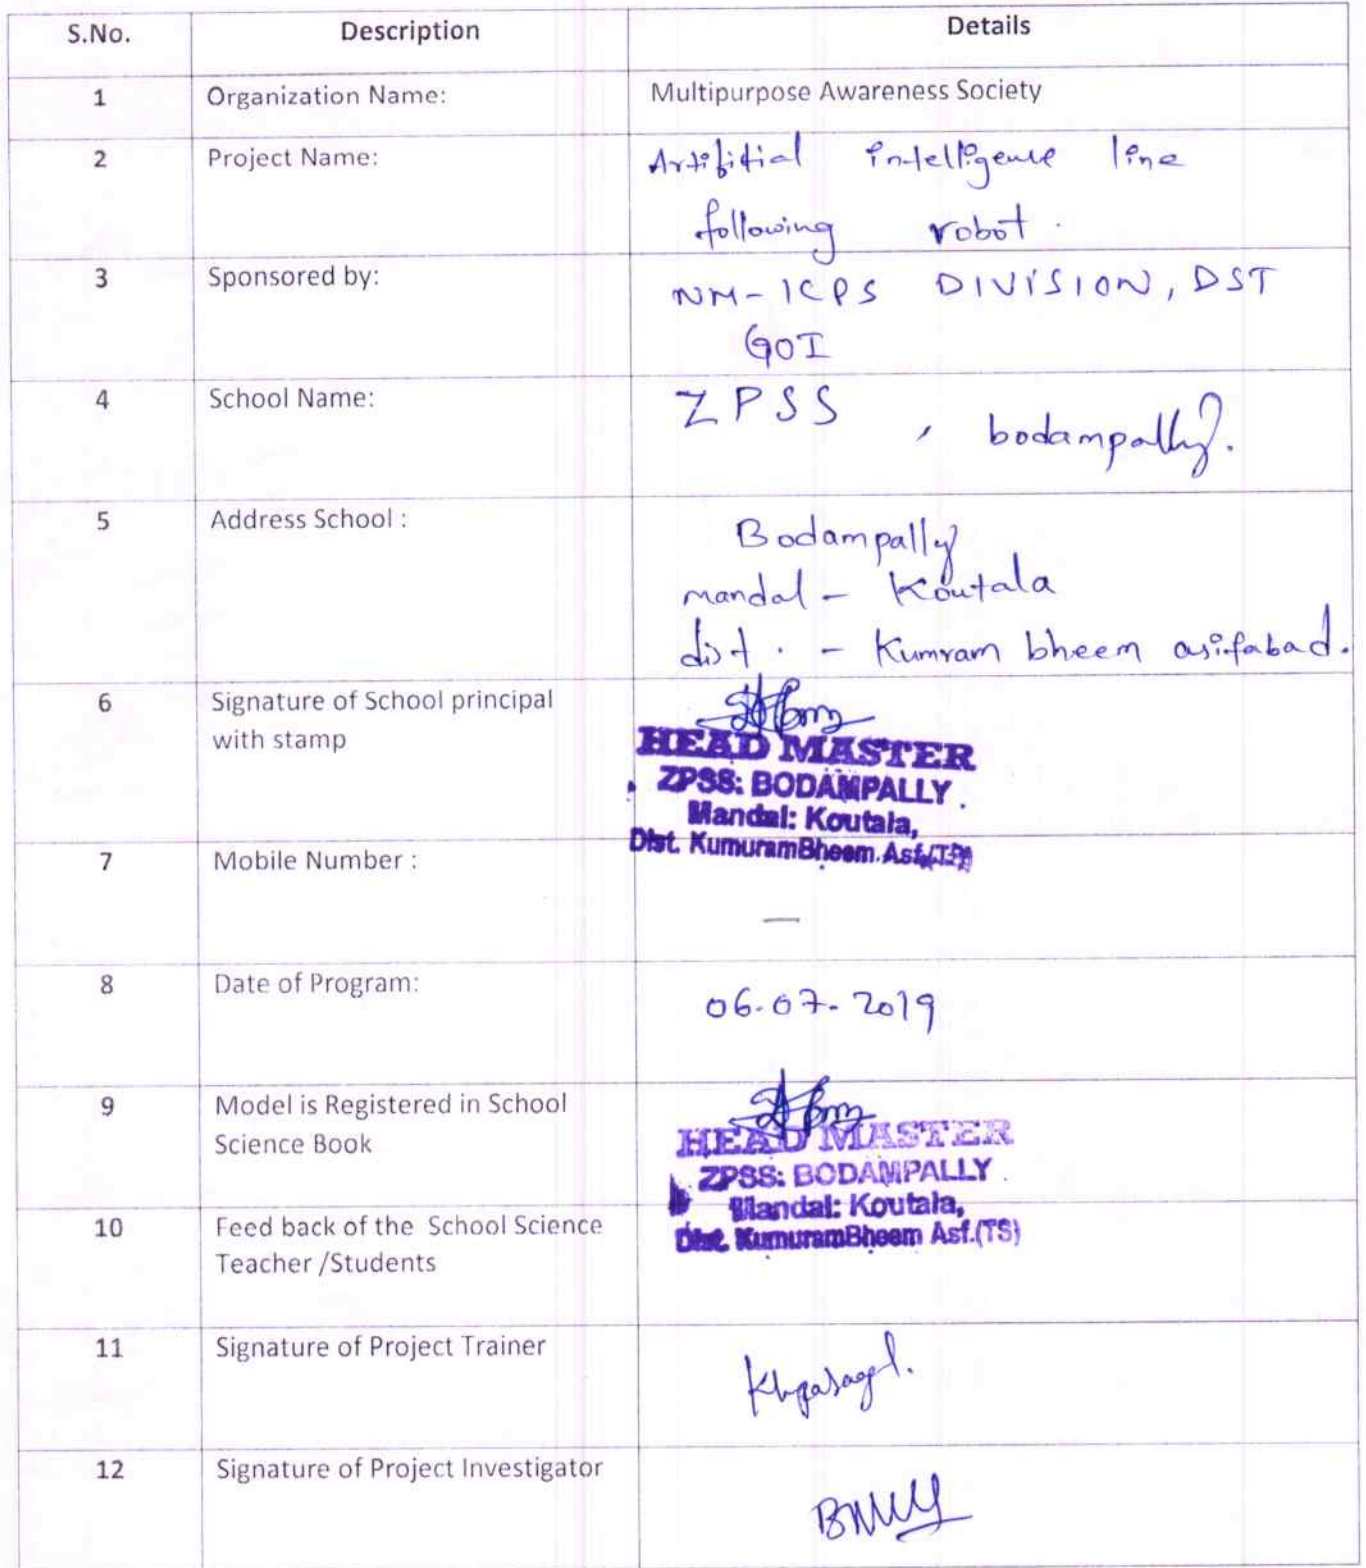 S.No. Description Details
1 Organization Name: Multipurpose Awareness Society
2 Project Name: Artifitial intelligence line
following robot.
3 Sponsored by: NM-ICPS DIVISION, DST
GOI
4 School Name: ZPSS, bodampally.
5 Address School : Bodampally
mandal - Koutala
dist. - Kumram bheem asifabad.
6 Signature of School principal
with stamp
HEAD MASTER
ZPSS: BODAMPALLY
Mandal: Koutala,
Dist. KumuramBheem Asf.(TS)
7 Mobile Number : —
8 Date of Program: 06-07-2019
9 Model is Registered in School
Science Book
HEAD MASTER
ZPSS: BODAMPALLY
Mandal: Koutala,
Dist. KumuramBheem Asf.(TS)
10 Feed back of the School Science
Teacher /Students
11 Signature of Project Trainer
12 Signature of Project Investigator